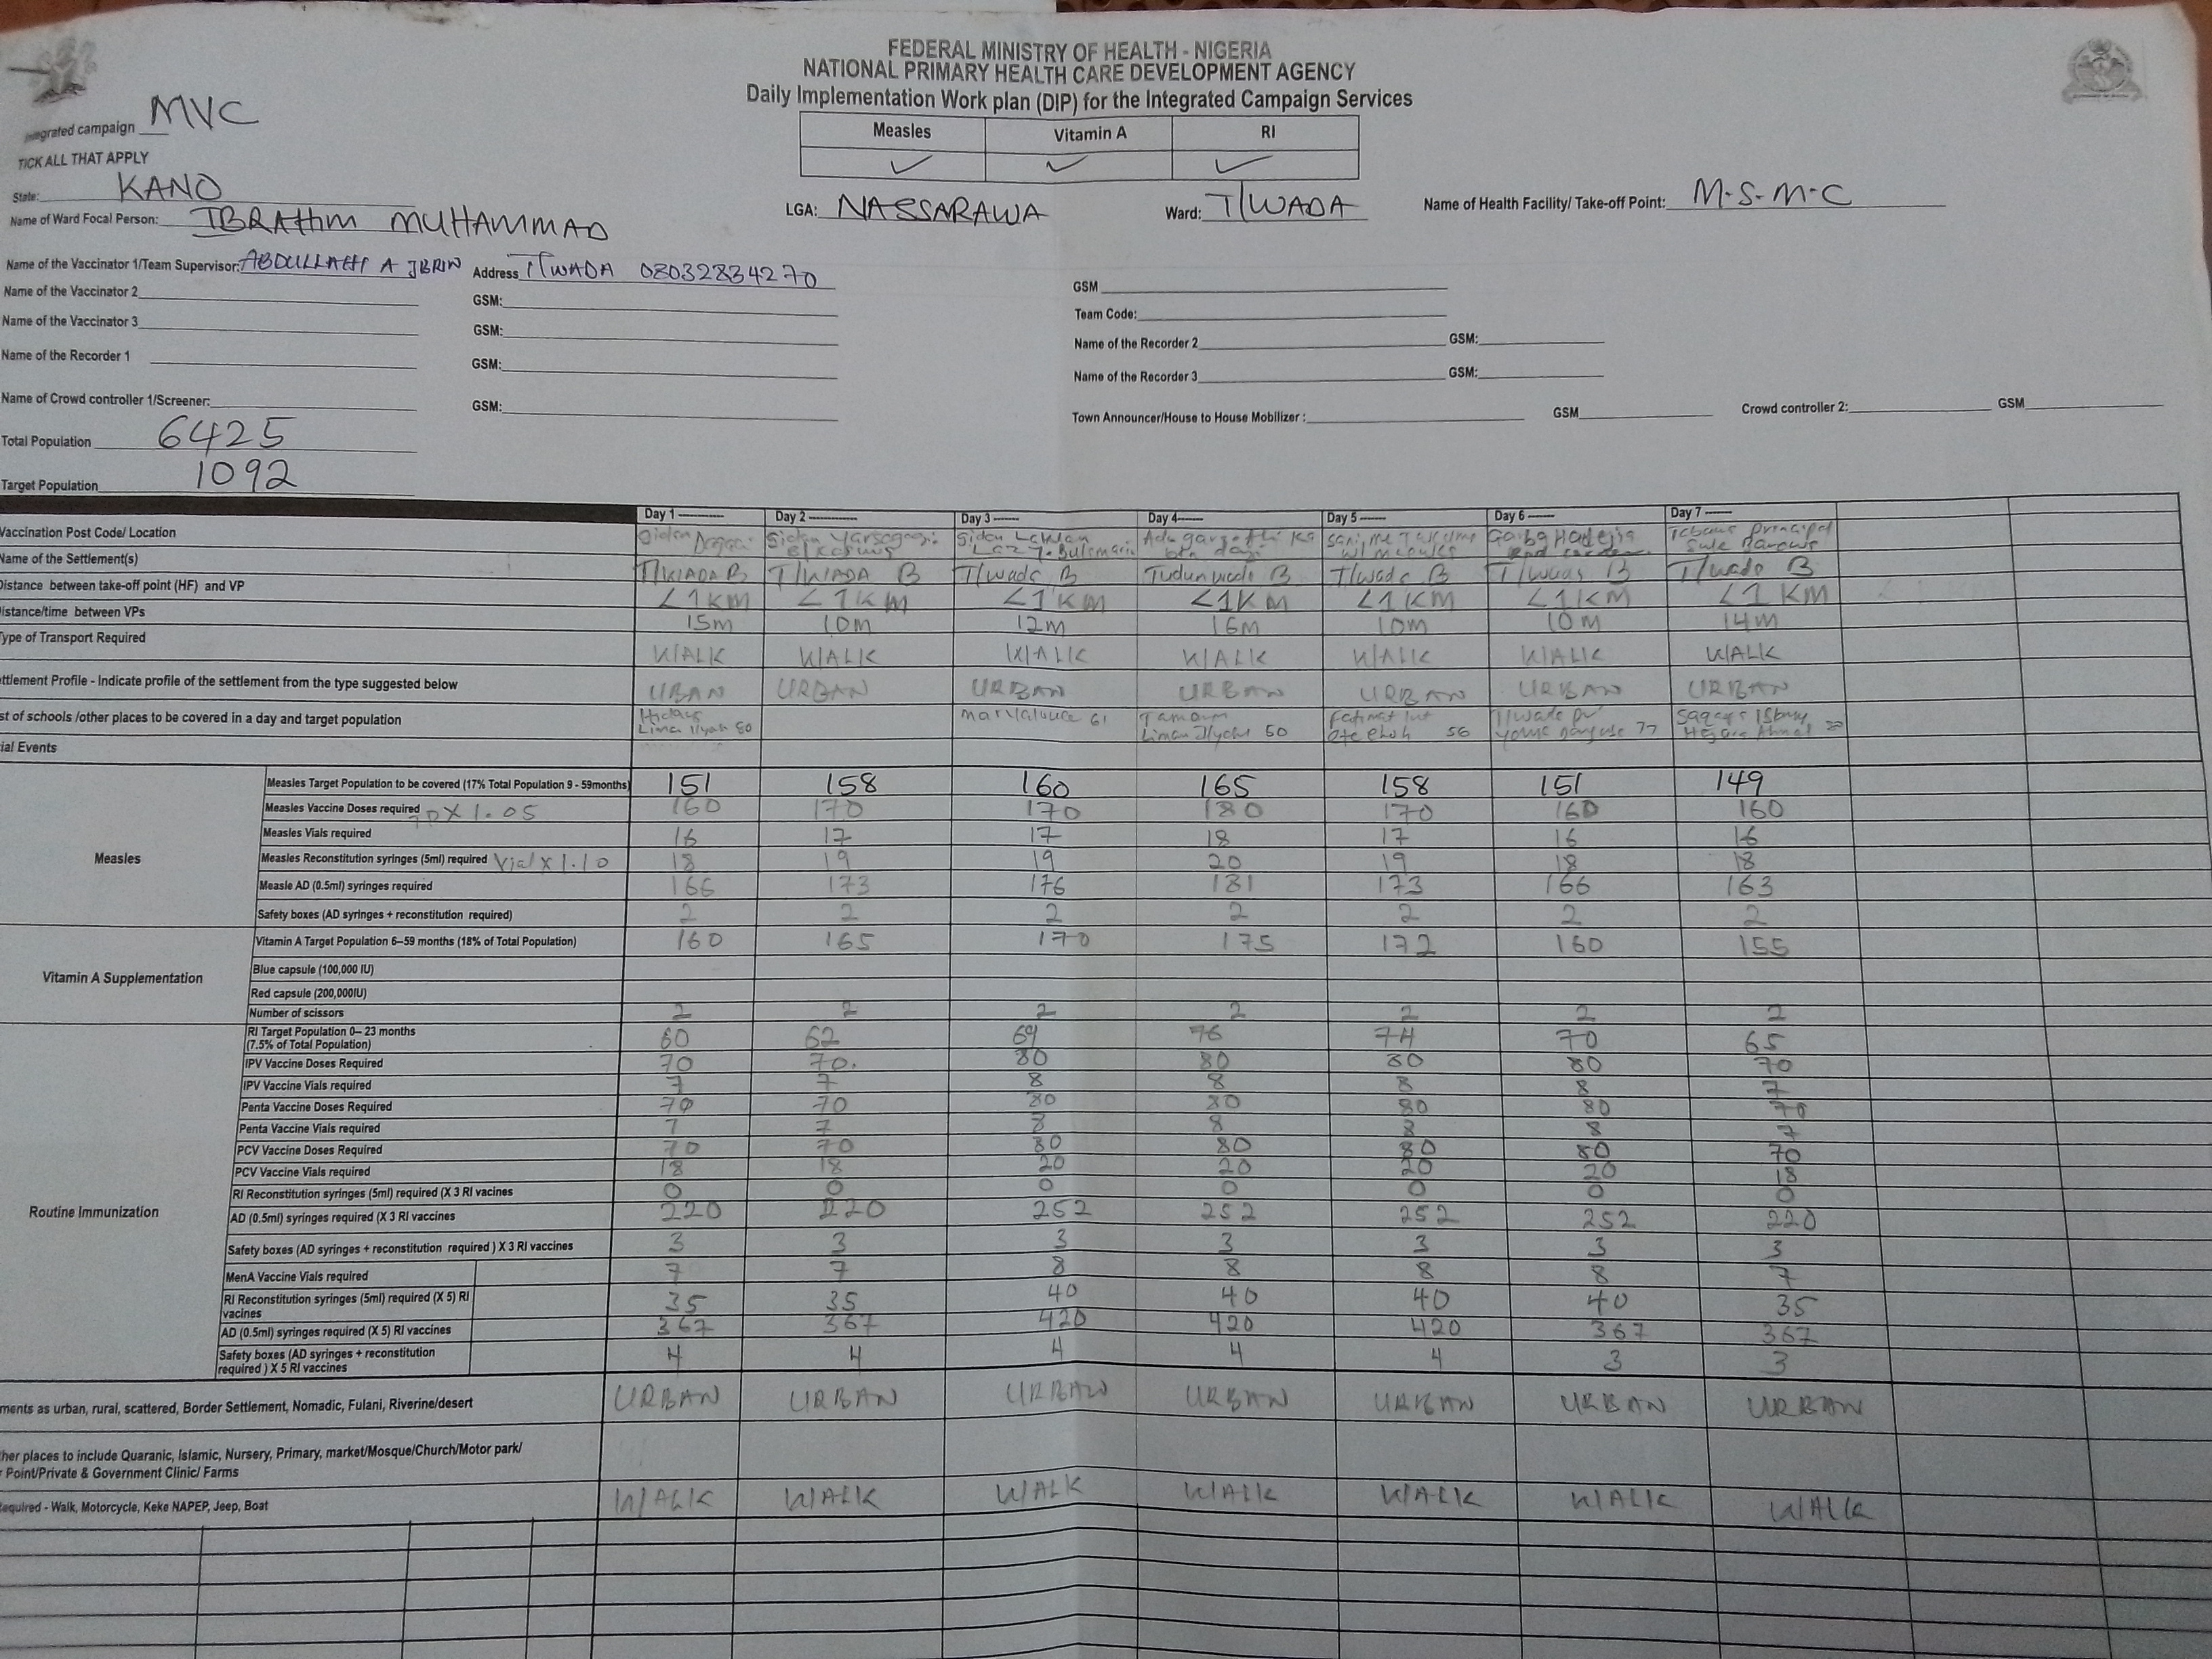 FEDERAL MINISTRY OF HEALTH - NIGERIA
NATIONAL PRIMARY HEALTH CARE DEVELOPMENT AGENCY
Daily Implementation Work plan (DIP) for the Integrated Campaign Services
Integrated campaign MVC
Measles Vitamin A RI
✓ ✓ ✓
TICK ALL THAT APPLY
State: KANO
LGA: NASSARAWA Ward: T/WADA Name of Health Facility/ Take-off Point: M-S-M-C
Name of Ward Focal Person: IBRAHIM MUHAMMAD
Name of the Vaccinator 1/Team Supervisor: ABDULLAHI A JBRIN Address T/WADA 08032834270 GSM
Name of the Vaccinator 2 GSM: Team Code:
Name of the Vaccinator 3 GSM: Name of the Recorder 2 GSM:
Name of the Recorder 1 GSM: Name of the Recorder 3 GSM:
Name of Crowd controller 1/Screener: GSM: Town Announcer/House to House Mobilizer : GSM Crowd controller 2: GSM
Total Population 6425
Target Population 1092
Day 1 Day 2 Day 3 Day 4 Day 5 Day 6 Day 7
Vaccination Post Code/ Location Gidan Gidan Gidan Garba Hadejia Principal
Name of the Settlement(s) T/WADA B T/WADA B T/wada B Tudunwada B T/wada B T/wada B T/wada B
Distance between take-off point (HF) and VP <1KM <1KM <1KM <1KM <1KM <1KM <1KM
Distance/time between VPs 15m 10m 12m 16m 10m 10m 14m
Type of Transport Required WALK WALK WALK WALK WALK WALK WALK
ettlement Profile - Indicate profile of the settlement from the type suggested below URBAN URBAN URBAN URBAN URBAN URBAN URBAN
st of schools /other places to be covered in a day and target population 61 50 56 77
ial Events
Measles
Measles Target Population to be covered (17% Total Population 9 - 59months) 151 158 160 165 158 151 149
Measles Vaccine Doses required TP X 1.05 160 170 170 180 170 160 160
Measles Vials required 16 17 17 18 17 16 16
Measles Reconstitution syringes (5ml) required Vial X 1.10 18 19 19 20 19 18 18
Measle AD (0.5ml) syringes required 166 173 176 181 173 166 163
Safety boxes (AD syringes + reconstitution required) 2 2 2 2 2 2 2
Vitamin A Supplementation
Vitamin A Target Population 6–59 months (18% of Total Population) 160 165 170 175 172 160 155
Blue capsule (100,000 IU)
Red capsule (200,000IU)
Number of scissors 2 2 2 2 2 2 2
Routine Immunization
RI Target Population 0– 23 months (7.5% of Total Population) 60 62 69 76 74 70 65
IPV Vaccine Doses Required 70 70. 80 80 80 80 70
IPV Vaccine Vials required 7 7 8 8 8 8 7
Penta Vaccine Doses Required 70 70 80 80 80 80 70
Penta Vaccine Vials required 7 7 8 8 8 8 7
PCV Vaccine Doses Required 70 70 80 80 80 80 70
PCV Vaccine Vials required 18 18 20 20 20 20 18
RI Reconstitution syringes (5ml) required (X 3 RI vacines 0 0 0 0 0 0 0
AD (0.5ml) syringes required (X 3 RI vaccines 220 220 252 252 252 252 220
Safety boxes (AD syringes + reconstitution required ) X 3 RI vaccines 3 3 3 3 3 3 3
MenA Vaccine Vials required 7 7 8 8 8 8 7
RI Reconstitution syringes (5ml) required (X 5) RI vacines 35 35 40 40 40 40 35
AD (0.5ml) syringes required (X 5) RI vaccines 367 367 420 420 420 367 367
Safety boxes (AD syringes + reconstitution required ) X 5 RI vaccines 4 4 4 4 4 3 3
ments as urban, rural, scattered, Border Settlement, Nomadic, Fulani, Riverine/desert URBAN URBAN URBAN URBAN URBAN URBAN URBAN
her places to include Quaranic, Islamic, Nursery, Primary, market/Mosque/Church/Motor park/
Point/Private & Government Clinic/ Farms
equired - Walk, Motorcycle, Keke NAPEP, Jeep, Boat WALK WALK WALK WALK WALK WALK WALK